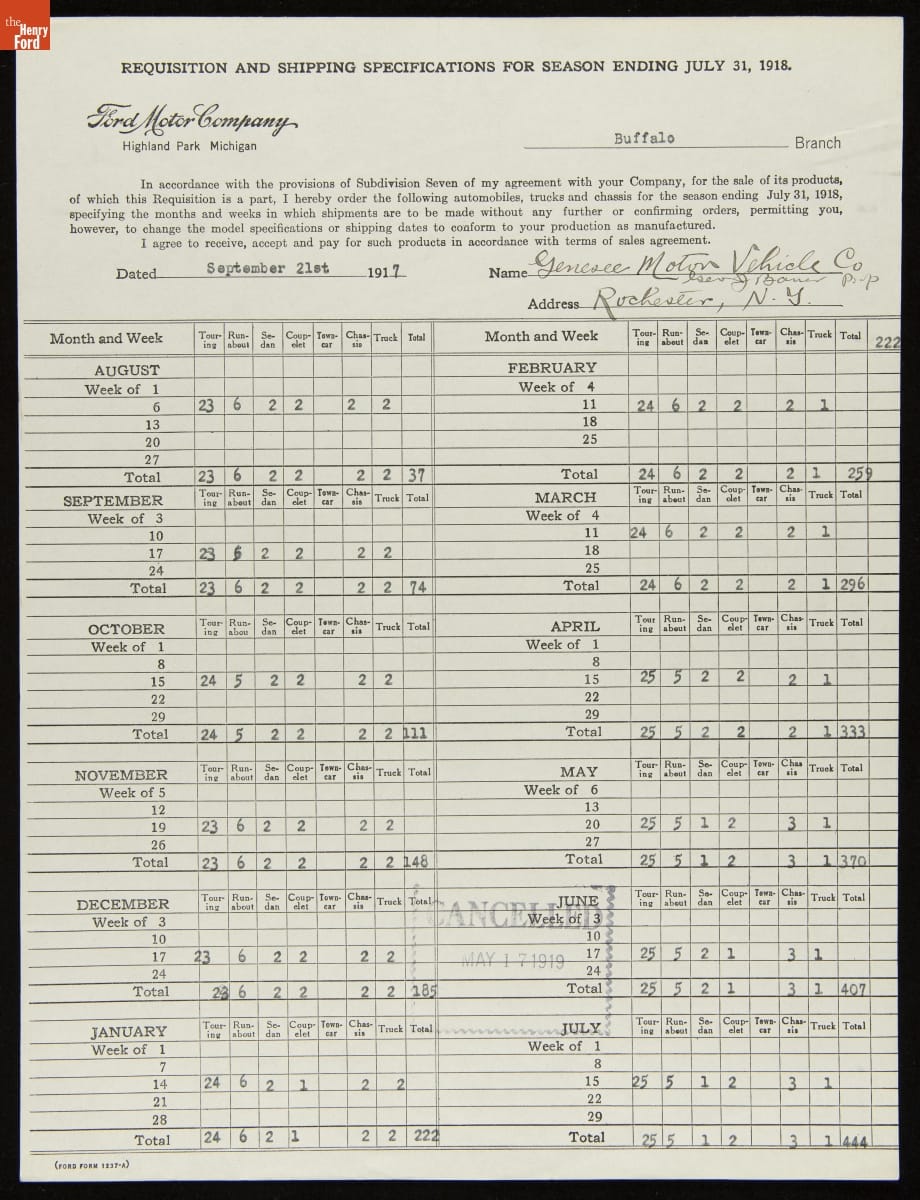 the
Henry
Ford
REQUISITION AND SHIPPING SPECIFICATIONS FOR SEASON ENDING JULY 31, 1918.
Ford Motor Company
Highland Park Michigan
Buffalo Branch
In accordance with the provisions of Subdivision Seven of my agreement with your Company, for the sale of its products,
of which this Requisition is a part, I hereby order the following automobiles, trucks and chassis for the season ending July 31, 1918,
specifying the months and weeks in which shipments are to be made without any further or confirming orders, permitting you,
however, to change the model specifications or shipping dates to conform to your production as manufactured.
I agree to receive, accept and pay for such products in accordance with terms of sales agreement.
Dated September 21st 1917 Name Genesee Motor Vehicle Co
Geo J Bauer Prop
Address Rochester, N. Y.
Month and Week Tour-ing Run-about Se-dan Coup-elet Town-car Chas-sis Truck Total
AUGUST
Week of 1
6 23 6 2 2 2 2
13
20
27
Total 23 6 2 2 2 2 37
SEPTEMBER Tour-ing Run-about Se-dan Coup-elet Town-car Chas-sis Truck Total
Week of 3
10
17 23 6 2 2 2 2
24
Total 23 6 2 2 2 2 74
OCTOBER Tour-ing Run-abou Se-dan Coup-elet Town-car Chas-sis Truck Total
Week of 1
8
15 24 5 2 2 2 2
22
29
Total 24 5 2 2 2 2 111
NOVEMBER Tour-ing Run-about Se-dan Coup-elet Town-car Chas-sis Truck Total
Week of 5
12
19 23 6 2 2 2 2
26
Total 23 6 2 2 2 2 148
DECEMBER Tour-ing Run-about Se-dan Coup-elet Town-car Chas-sis Truck Total
Week of 3
10
17 23 6 2 2 2 2
24
Total 23 6 2 2 2 2 185
JANUARY Tour-ing Run-about Se-dan Coup-elet Town-car Chas-sis Truck Total
Week of 1
7
14 24 6 2 1 2 2
21
28
Total 24 6 2 1 2 2 222
(FORD FORM 1237-A)
Month and Week Tour-ing Run-about Se-dan Coup-elet Town-car Chas-sis Truck Total 222
FEBRUARY
Week of 4
11 24 6 2 2 2 1
18
25
Total 24 6 2 2 2 1 259
MARCH Tour-ing Run-about Se-dan Coup-elet Town-car Chas-sis Truck Total
Week of 4
11 24 6 2 2 2 1
18
25
Total 24 6 2 2 2 1 296
APRIL Tour ing Run-about Se-dan Coup-elet Town-car Chas-sis Truck Total
Week of 1
8
15 25 5 2 2 2 1
22
29
Total 25 5 2 2 2 1 333
MAY Tour-ing Run-about Se-dan Coup-elet Town-car Chas sis Truck Total
Week of 6
13
20 25 5 1 2 3 1
27
Total 25 5 1 2 3 1 370
JUNE Tour-ing Run-about Se-dan Coup-elet Town-car Chas-sis Truck Total
CANCELLED
Week of 3
10
17 25 5 2 1 3 1
MAY 17 1919
24
Total 25 5 2 1 3 1 407
JULY Tour-ing Run-about Se-dan Coup-elet Town-car Chas-sis Truck Total
Week of 1
8
15 25 5 1 2 3 1
22
29
Total 25 5 1 2 3 1 444